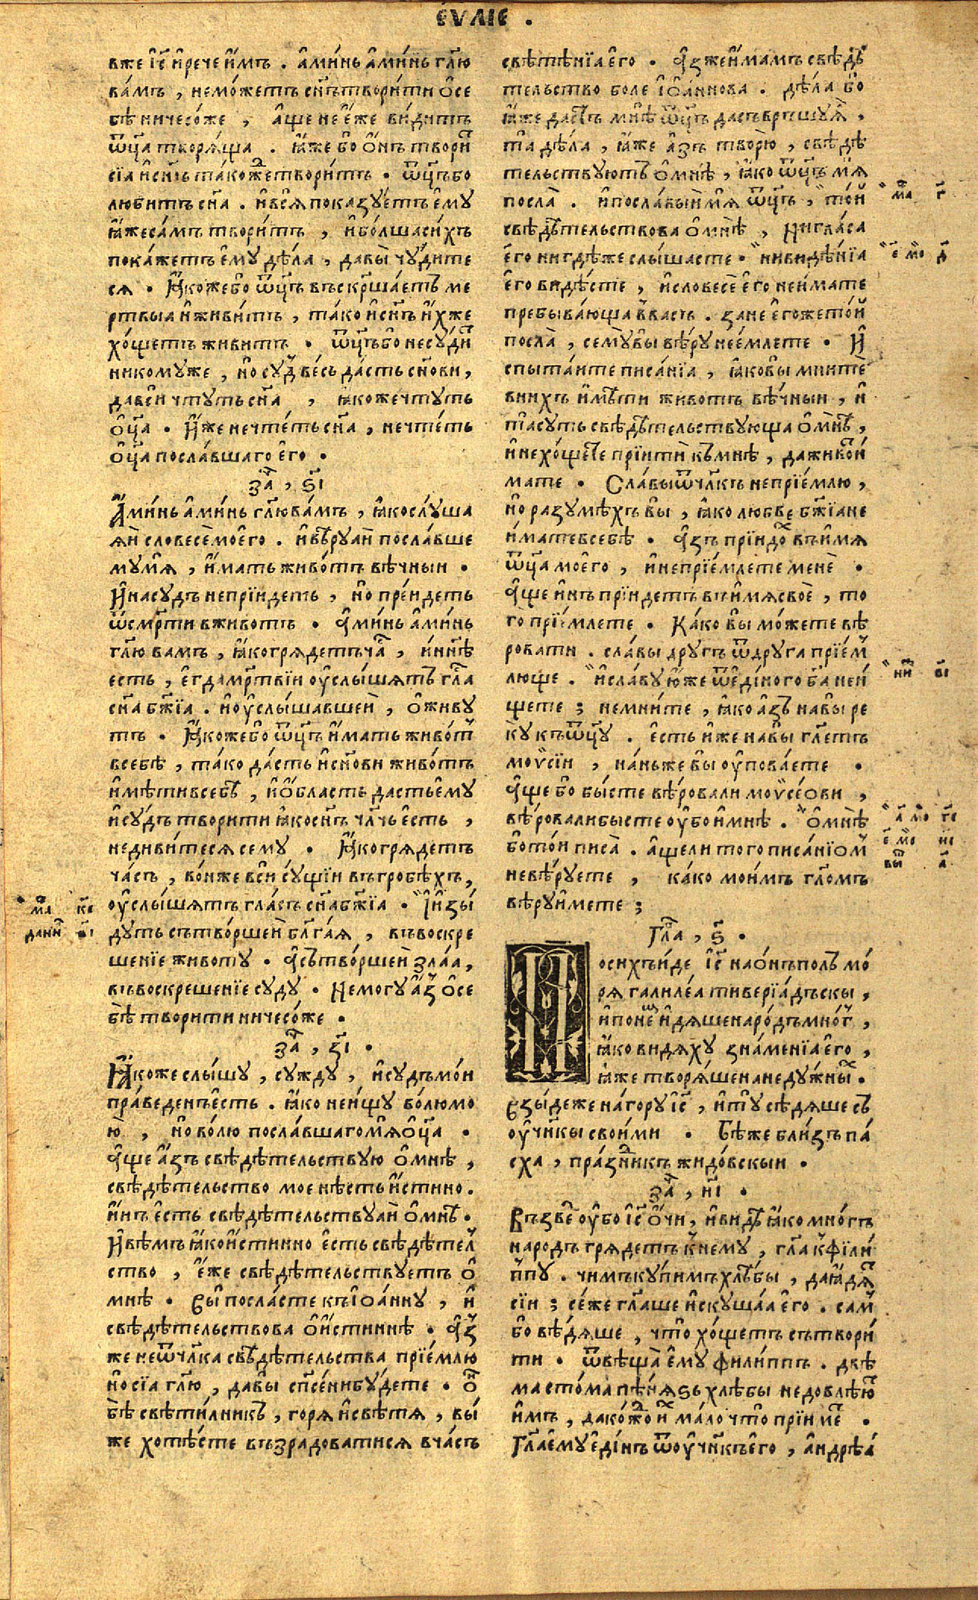 ЄѴЛІЄ .
вже і҃с и҆рече и҆мъ . а҆ми́нь а҆ми́нь гл҃ю
ва́мъ , немо́жетъ сн҃ъ твори́ти ѡ҆се
бѣ̀ ничесо́же , а҆ще не є҆́же ви́дитъ
ѿц҃а творѧ́ща . ꙗ҆́же бо ѻ҆́нъ твори́
сїа и҆сн҃ъ та́коже твори́тъ . ѿц҃ъ бо
лю́битъ сн҃а . и҆всѧ̀ показꙋ́етъ є҆мꙋ̀
ꙗ҆́жеса́мъ твори́тъ , и҆бо́лшаси́хъ
пока́жетъ є҆мꙋ̀ дѣ́ла , давы̀ чю́дите
сѧ . Ꙗ҆́коже бо ѿц҃ъ въскр҃ша́етъ ме
ртвыа и҆живи́тъ , та́ко и҆сн҃ъ и҆́хже
хо́щетъ живи́тъ . ѿц҃ъ бо не сꙋ́ди
никомꙋ́же , но̀ сꙋ́д ве́сь да́сть сн҃ови ,
да всѝ чтꙋ́ть сн҃а , ꙗ҆́коже чтꙋ́ть
ѻ҆ц҃а . И҆́же нечте́ть сн҃а , нечте́ть
ѻ҆ц҃а посла́вшаго є҆го̀ .
за҃ , ѕ҃і
А҆ми́нь а҆ми́нь гл҃ю ва́мъ , ꙗ҆́кослꙋ́ша
ѧ́и словесѐ моего̀ . и҆вѣ́рꙋаи посла́вше
мꙋ мѧ̀ , и҆́мать живо́тъ вѣ́чныи .
И҆насꙋ́дъ непрїи́деть , но̀ пре́идеть
ѿсм҃рти вживо́тъ . А҆ми́нь а҆ми́нь
гл҃ю ва́мъ , ꙗ҆́ко грѧде́тъ ча́ , и҆нн҃ѣ
є҆сть , є҆гда̀ ме́ртвїи ѹ҆слы́шѧтъ гла́
сн҃а бж҃їа . и҆ѹ҆слы́шавшеи , ѻ҆живꙋ
тъ . Ꙗ҆́коже бо ѿц҃ъ и҆́мать живо́т
всебѣ̀ , та́ко да́сть и҆сн҃ови живо́тъ
и҆мѣ́ти всебѣ̀ , и҆ѻ҆́бласть да́сть є҆мꙋ
и҆сꙋ́дъ твори́ти ꙗ҆́ко сн҃ъ чл҃чь є҆сть ,
недиви́тесѧ семꙋ̀ . Ꙗ҆́ко грѧде́тъ
ча́съ , во́ньже всѝ сꙋ́щїи въ гробѣ́хъ ,
ѹ҆слы́шѧтъ гла́съ сн҃а бж҃їа . И҆изы́
дꙋть сътво́ршеи бл҃га́ѧ , въ воскре
ше́нїе животꙋ̀ . а҆сътво́ршеи зла́а ,
въвоскреше́нїе сꙋдꙋ̀ . Немогꙋ̀ а҆́з ѻ҆се
бѣ̀ твори́ти ничесо́же .
за҃ , з҃і .
Ꙗ҆́коже слы́шꙋ , сꙋждꙋ̀ , и҆сꙋ́дъ мо́и
пра́веденъ є҆сть . ꙗ҆́ко неи́щꙋ во́лю мо
ю̀ , но̀ во́лю посла́вшаго мѧ̀ ѻ҆ц҃а .
а҆ще а҆́зъ свѣдѣ́тельствꙋю ѻ҆мнѣ̀ ,
свѣдѣ́тельство мое нѣ́сть и҆́стинно .
и҆́нъ є҆сть свѣдѣ́тельствꙋаи ѻ҆мнѣ̀ .
И҆вѣ́мъ ꙗ҆́ко и҆́стинно є҆сть свѣдѣ́тел
ство , є҆́же свѣдѣ́тельствꙋетъ ѻ҆
мнѣ̀ . Вы̀ посла́сте къ і҆ѻа́ннꙋ , и҆
свѣдѣ́тельствова ѻ҆и҆́стиннѣ . а҆́з
же не ѿчл҃ка свѣдѣ́тельства прїе́млю
но̀ сїа̀ гл҃ю , давы̀ сп҃се́ни бꙋ́дете . ѻ҆́н
бѣ̀ свѣти́лникъ , горѧ̀ и҆свѣтѧ̀ , вы́
же хотѣ́сте възра́доватисѧ вча́съ
свѣте́нїа є҆го̀ . а҆́з же и҆́мамъ свѣдѣ́
тельство боле і҆ѻа́ннова . дѣ́ла бо
ꙗ҆́же да́стъ мнѣ̀ ѿц҃ъ да съвръшꙋ́ ѧ ,
та̀ дѣ́ла , ꙗ҆́же а҆́зъ творю̀ , свѣдѣ́
тельствꙋютъ ѻ҆мнѣ̀ , ꙗ҆́ко ѿц҃ъ мѧ̀
посла̀ . и҆посла́выи мѧ̀ ѿц҃ъ , то́и
свѣдѣ́тельствова ѻ҆мнѣ̀ , Ни гла́са
є҆го̀ нигдѣ́же слы́шасте . ни видѣ́нїа
є҆го̀ ви́дѣсте , и҆словесѐ є҆го̀ не и҆́мате
пребыва́юща ввасъ . занѐ є҆го́же то́и
посла̀ , семꙋ̀ вы̀ вѣ́рꙋ не е́млете . И҆
спыта́ите писа́нїа , ꙗ҆́ко вы̀ мните
вни́хъ и҆мѣ́ти живо́тъ вѣ́чныи , и҆
та̀ сꙋ́ть свѣдѣ́тельствꙋюща ѻ҆мнѣ̀ ,
и҆нехо́щете прїитѝ къ мнѣ̀ , да живо́т
мате . Сла́вы ѿчл҃къ непрїе́млю ,
но̀ разꙋмѣ́хъ вы̀ , ꙗ҆́ко любвѐ бж҃їа не
и҆́мате всебѣ̀ . а҆́зъ прїидо́х въи҆́мѧ
ѿц҃а моего̀ , и҆непрїе́млете менѐ .
а҆ще и҆́нъ прїи́детъ въ и҆́мѧ своѐ , то
го̀ прїе́млете . Ка́ко вы̀ мо́жете вѣ́
ровати . сла́вы дрꙋ́гъ ѿдрꙋга прїе́м
люще . и҆сла́вꙋ ю҆́же ѿе҆ди́ного бг҃а неи́
щете ; немни́те , ꙗ҆́ко а҆́зъ на вы̀ ре
кꙋ̀ къ ѿц҃ꙋ . є҆сть и҆́же на вы̀ гл҃етъ
моѵ̈си́и , на́ньже вы̀ ѹ҆пова́ете .
а҆ще бо бы́сте вѣ́ровали моѵ̈се́ови ,
вѣ́ровали бы́сте ѹ҆́бо и҆мнѣ̀ . ѻ҆мнѣ̀
бо то́и писа̀ . а҆ще ли того̀ писа́нїѡм
невѣ́рꙋете , ка́ко мои́мъ гл҃омъ
вѣ́рꙋимете ;
Гла҃ , ѕ҃ .
По си́хъ и҆́де і҃с на ѻ҆́нъ по́лъ мо́
рѧ галиле́а тиверїа́дъскы ,
и҆понем и҆дѧ́ше наро́дъ мно́г ,
ꙗ҆́ко ви́дѧхꙋ зна́менїа є҆го̀ ,
ꙗ҆́же творѧ́ше на недꙋ́жных .
Взы́де же на горꙋ і҃с , и҆тꙋ̀ сѣдѧ́ше съ
ѹ҆ч҃нкы свои́ми . Бѣ́ же бли́зъ па́
сха , пра́зникъ жидо́вскыи .
за҃ , и҃і .
Възве́д ѹ҆́бо і҃с ѻ҆́чи , и҆ви́дѣ ꙗ҆́ко мно́гъ
наро́дъ грѧде́тъ к нему , гл҃а к фїли́
ппꙋ . чи́мъ кꙋ́пимъ хлѣ́бы , да ꙗ҆дѧ́т
сїи ; се́же гл҃аше и҆скꙋша́а є҆го̀ . са́м
бо вѣ́дѧше , что̀ хо́щетъ сътвори́
ти . ѿвѣща̀ є҆мꙋ̀ фили́ппъ . двѣ́
ма сто́ма пѣ́нѧзь хлѣ́бы недовлѣ́ют
и҆мъ , да ко́ждо и҆х ма́ло что̀ прїиме .
Гл҃а є҆мꙋ̀ є҆ди́нъ ѿѹ҆ч҃нкъ є҆го̀ , а҆ндре́а